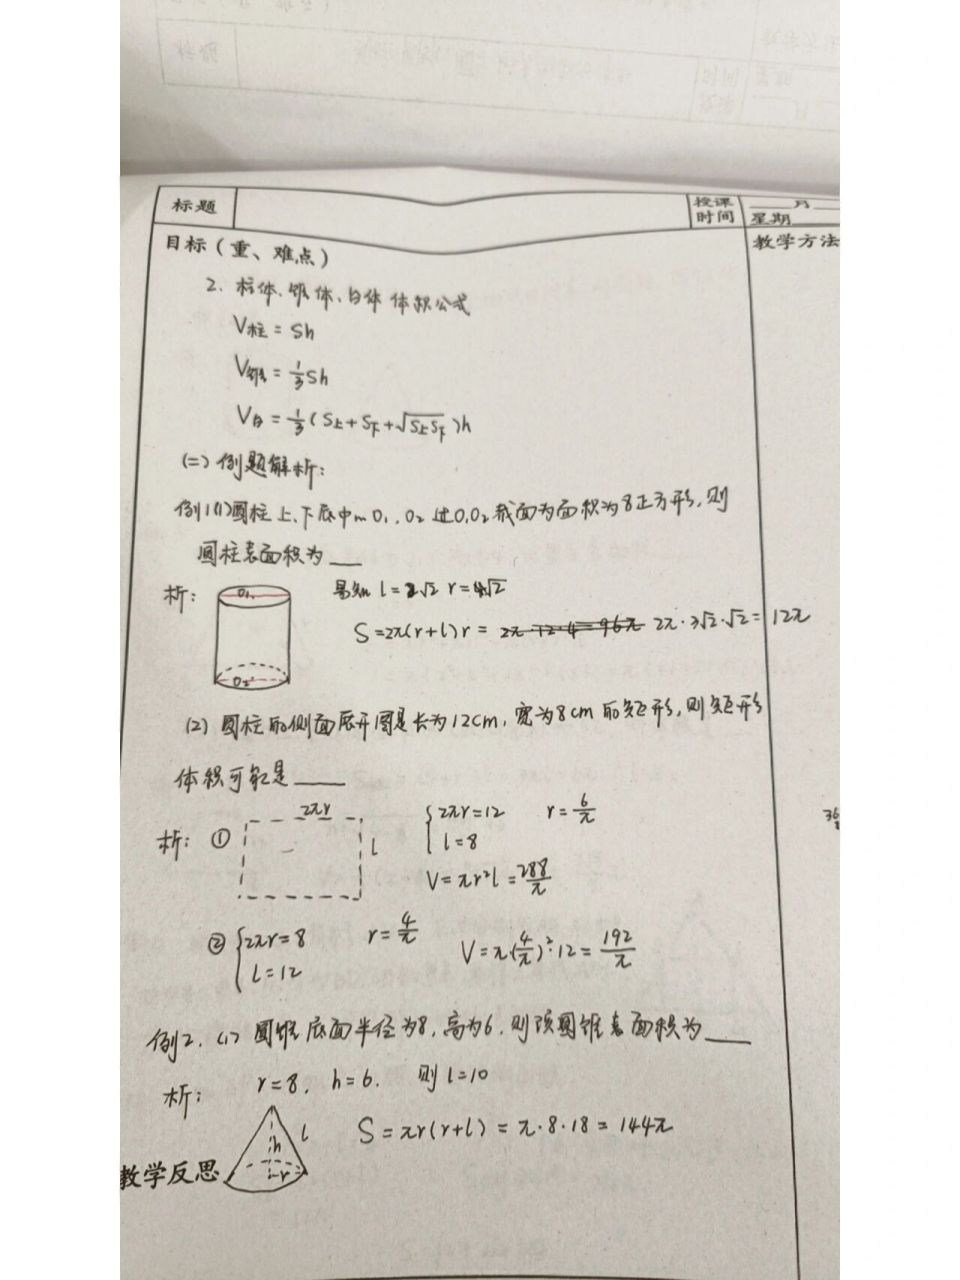 标题
授课时间
月
星期
目标（重、难点）
教学方法
2. 柱体、锥体、台体体积公式
V柱 = Sh
V锥 = 1/3 Sh
V台 = 1/3 (S上+S下+√S上S下)h
(二) 例题解析:
例1(1)圆柱上、下底中心O₁、O₂ 过O₁O₂截面为面积为8正方形,则
圆柱表面积为___
析:
O₁
O₂
易知 l=2√2 r=√2
S=2π(r+l)r = 2π·12·4=96π 2π·3√2·√2=12π
(2) 圆柱的侧面展开图是长为12cm,宽为8cm的矩形,则矩形
体积可能是____
析: ① 2πr l {2πr=12 l=8 r=6/π
V=πr²l=288/π
② {2πr=8 l=12 r=4/π V=π(4/π)²·12=192/π
例2. (1) 圆锥底面半径为8,高为6,则该圆锥表面积为___
析: r=8, h=6. 则l=10
h r l
S=πr(r+l)=π·8·18=144π
教学反思